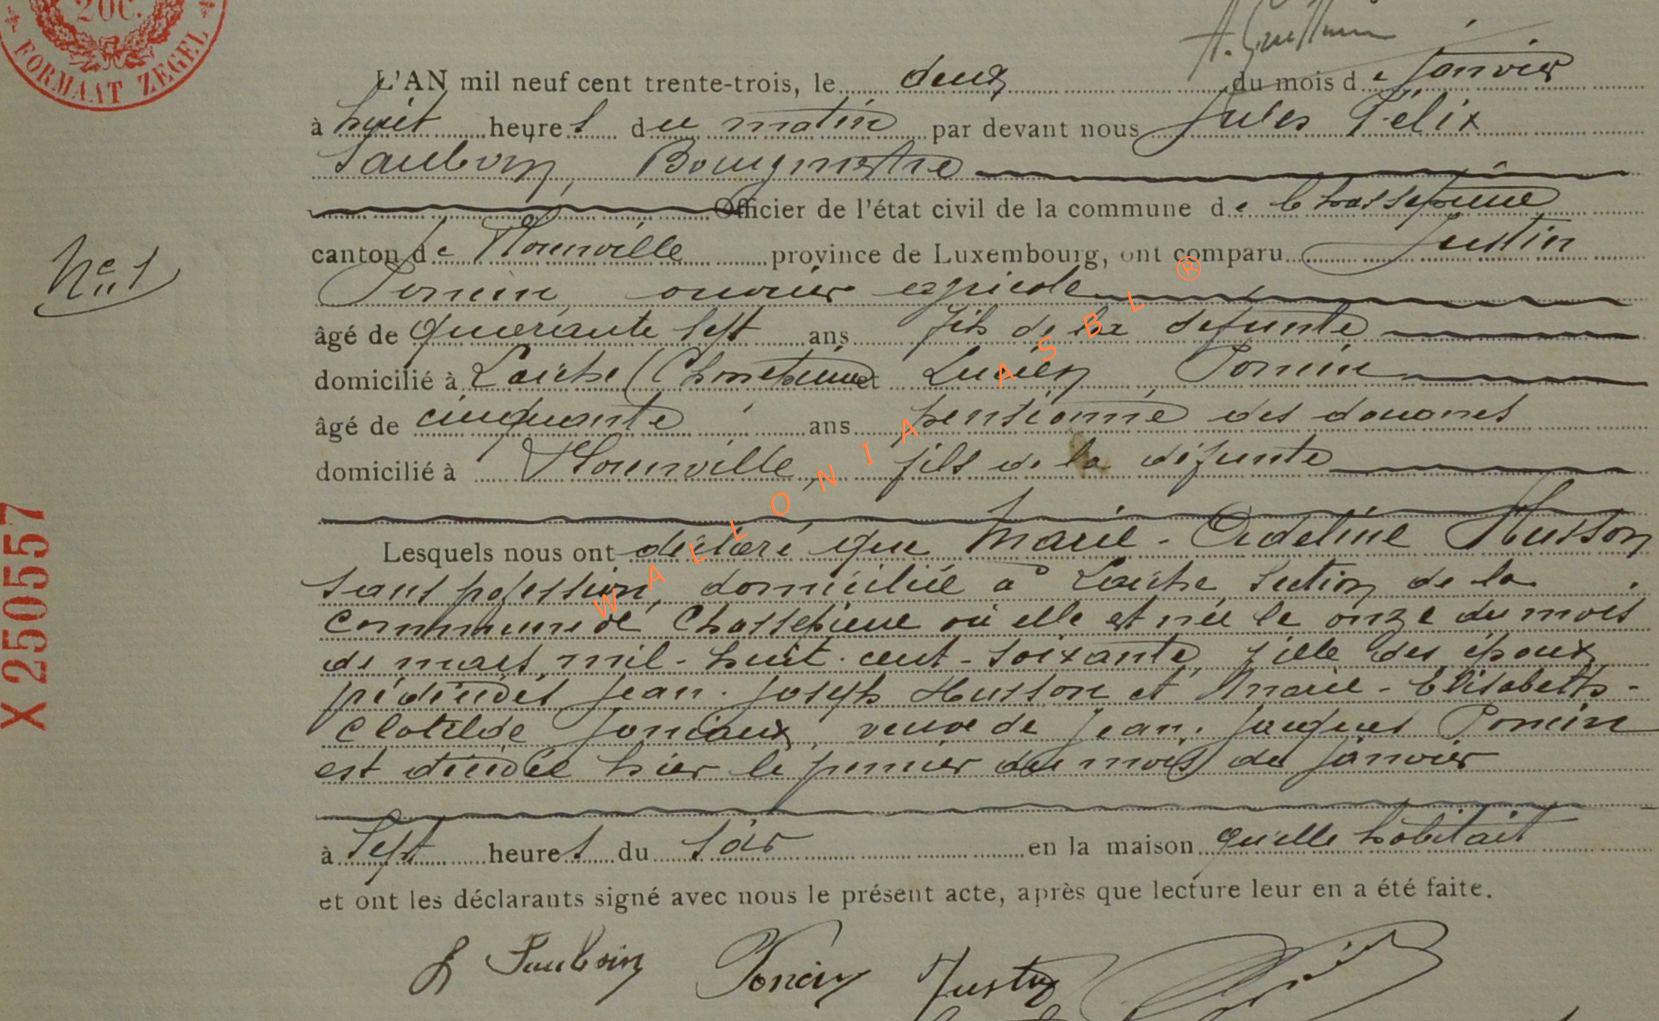 20C.
FORMAAT ZEGEL
L'AN mil neuf cent trente-trois, le deux du mois de Janvier
à huit heures du matin par devant nous Jules Félix
Sauboin, Bourgmestre
Officier de l'état civil de la commune de Chassepierre
canton de Florenville province de Luxembourg, ont comparu Justin
N° 1
Poncin ouvrier agricole
âgé de quarante sept ans fils de la défunte
domicilié à Laiche (Chassepierre) et Lucien Poncin
âgé de cinquante ans pensionné des douanes
domicilié à Florenville, fils de la défunte
X 250557
Lesquels nous ont déclaré que Marie-Adeline Husson
sans profession, domiciliée à Laiche, section de la
commune de Chassepierre où elle est née le onze du mois
de mars mil-huit-cent-soixante, fille des époux
prédécédés Jean-Joseph Husson et Marie-Elisabeth-
Clotilde Joniaux, veuve de Jean-Jacques Poncin
est décédée hier le premier du mois de janvier
à sept heures du soir en la maison qu'elle habitait
et ont les déclarants signé avec nous le présent acte, après que lecture leur en a été faite.
Sauboin Poncin Justin
WALLONIA ASBL ®